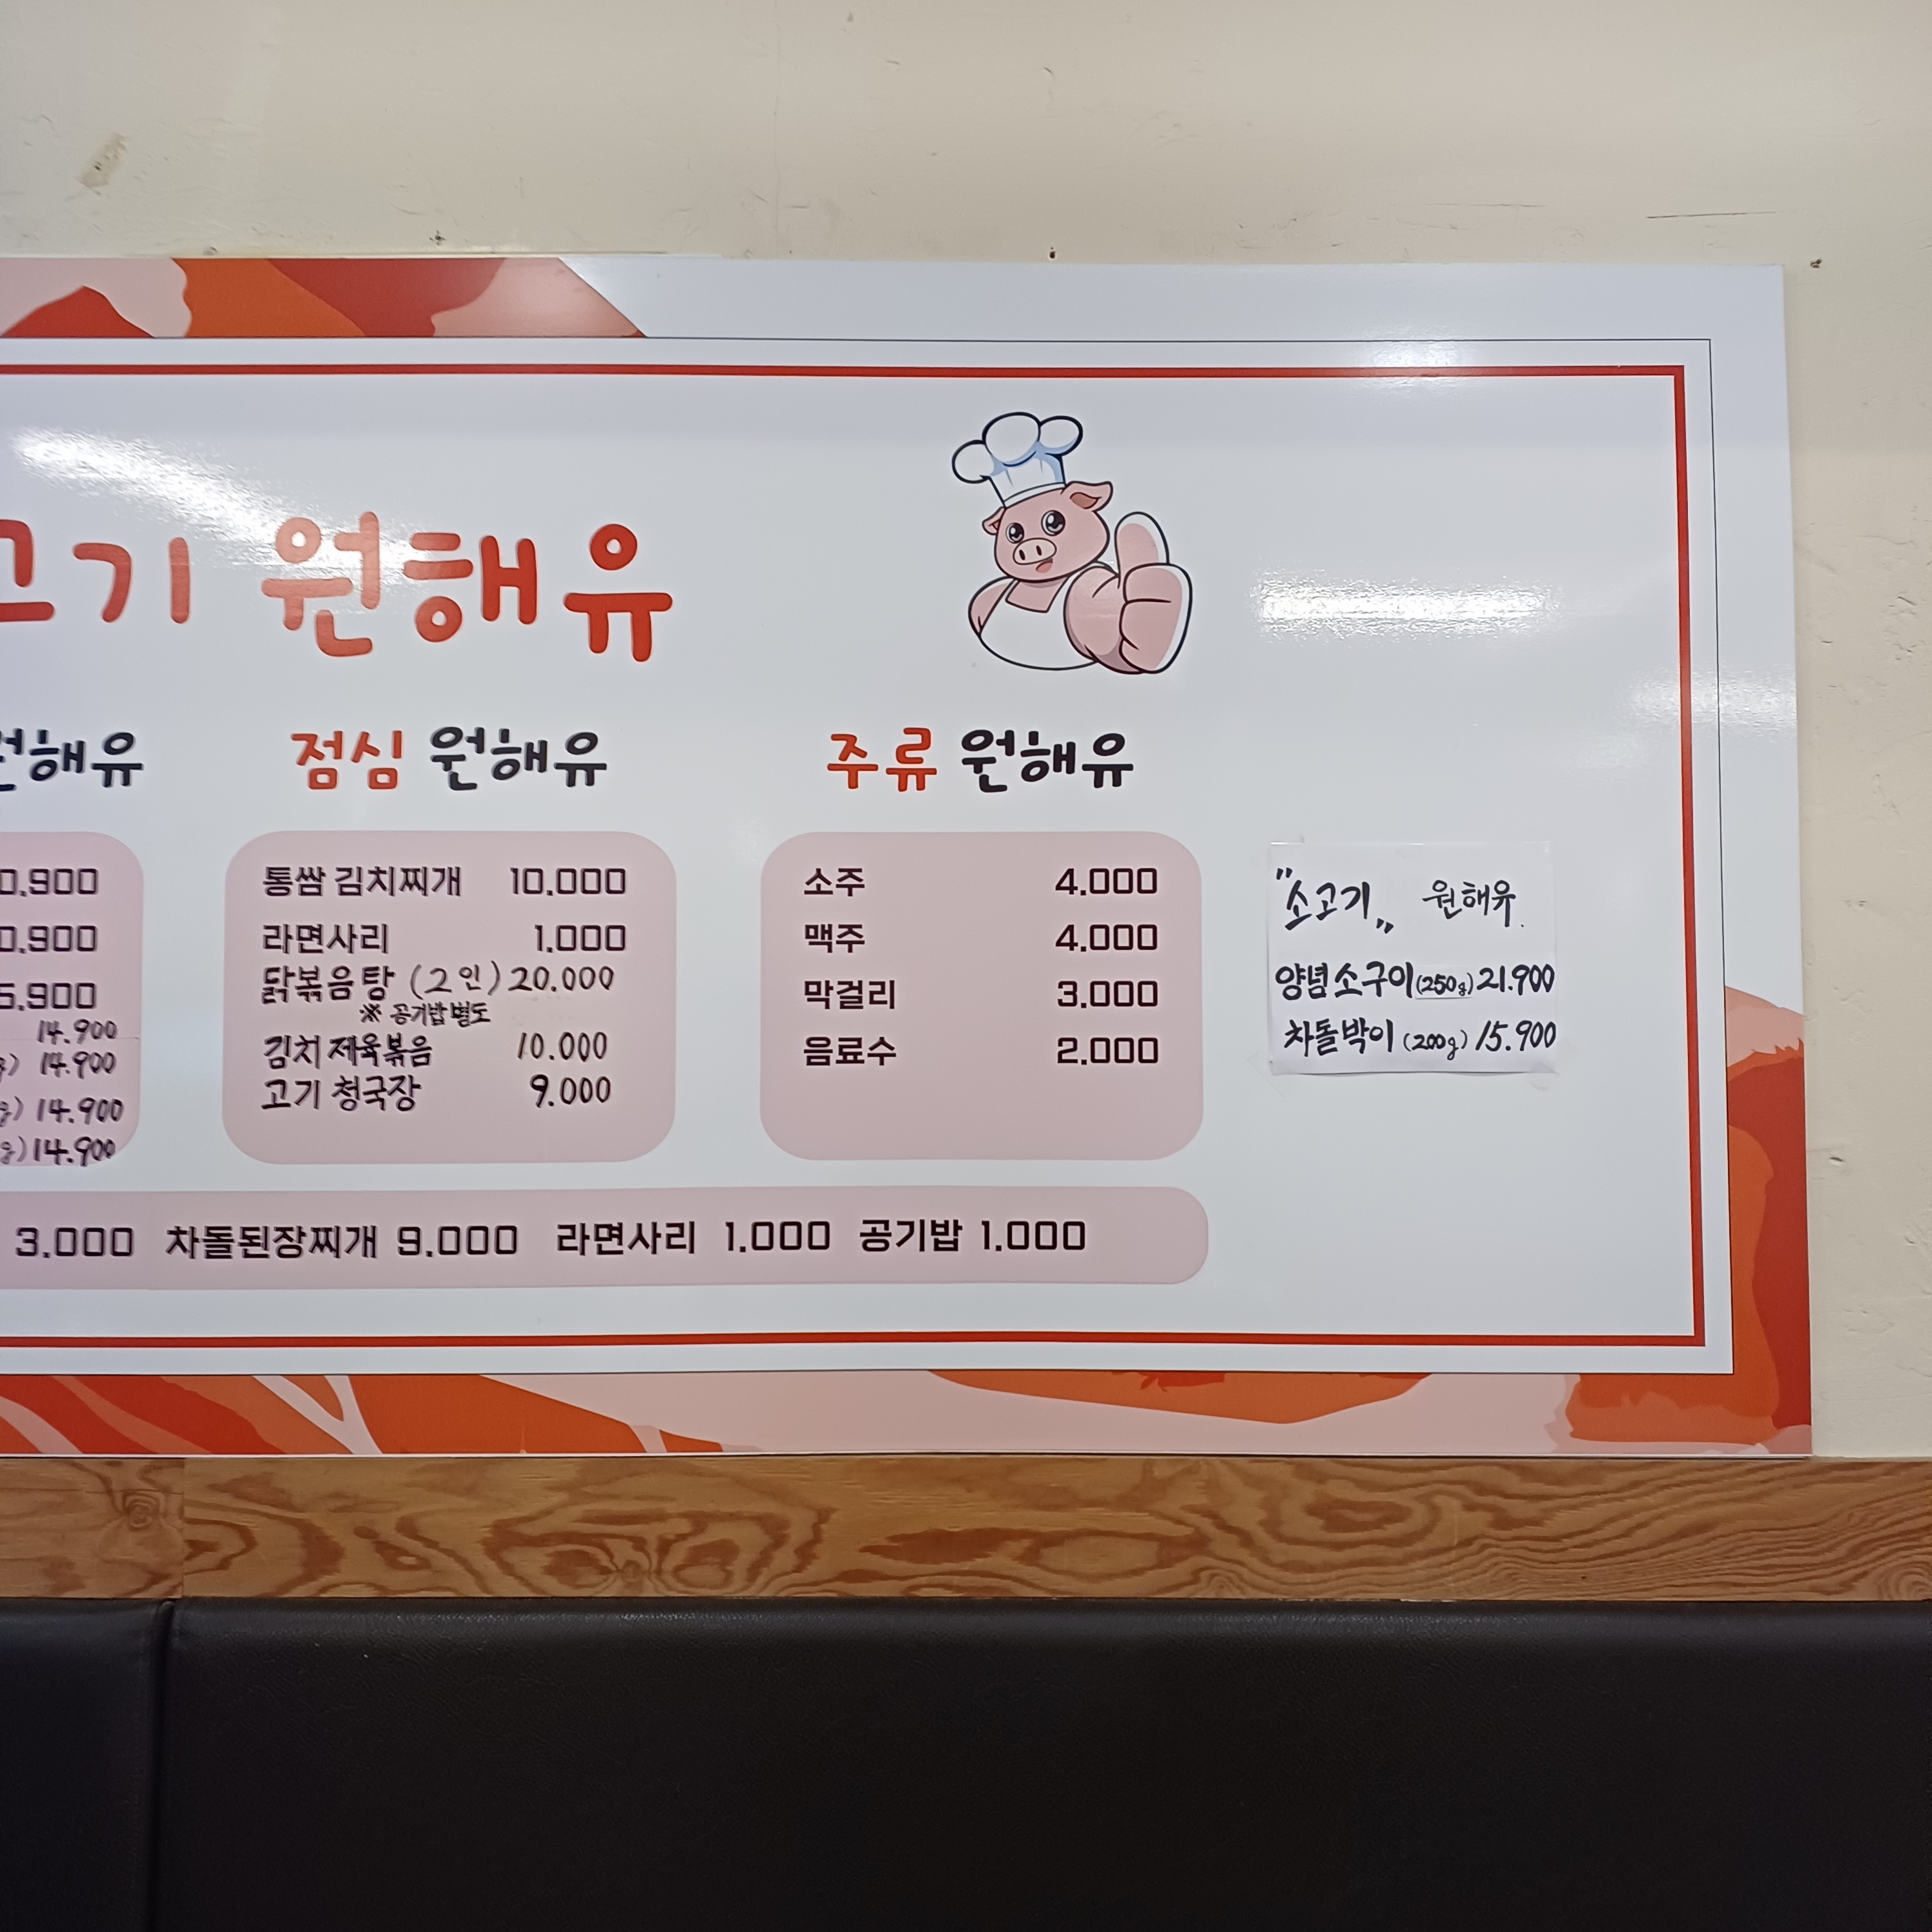 고기 원해유
원해유
0.900
0.900
5.900
14.900
g) 14.900
g) 14.900
g) 14.900
점심 원해유
통쌈 김치찌개 10.000
라면사리 1.000
닭볶음탕 (2인) 20.000
※ 공기밥별도
김치제육볶음 10.000
고기 청국장 9.000
주류 원해유
소주 4.000
맥주 4.000
막걸리 3.000
음료수 2.000
"소고기" 원해유.
양념소구이(250g) 21.900
차돌박이 (200g) 15.900
3.000 차돌된장찌개 9.000 라면사리 1.000 공기밥 1.000